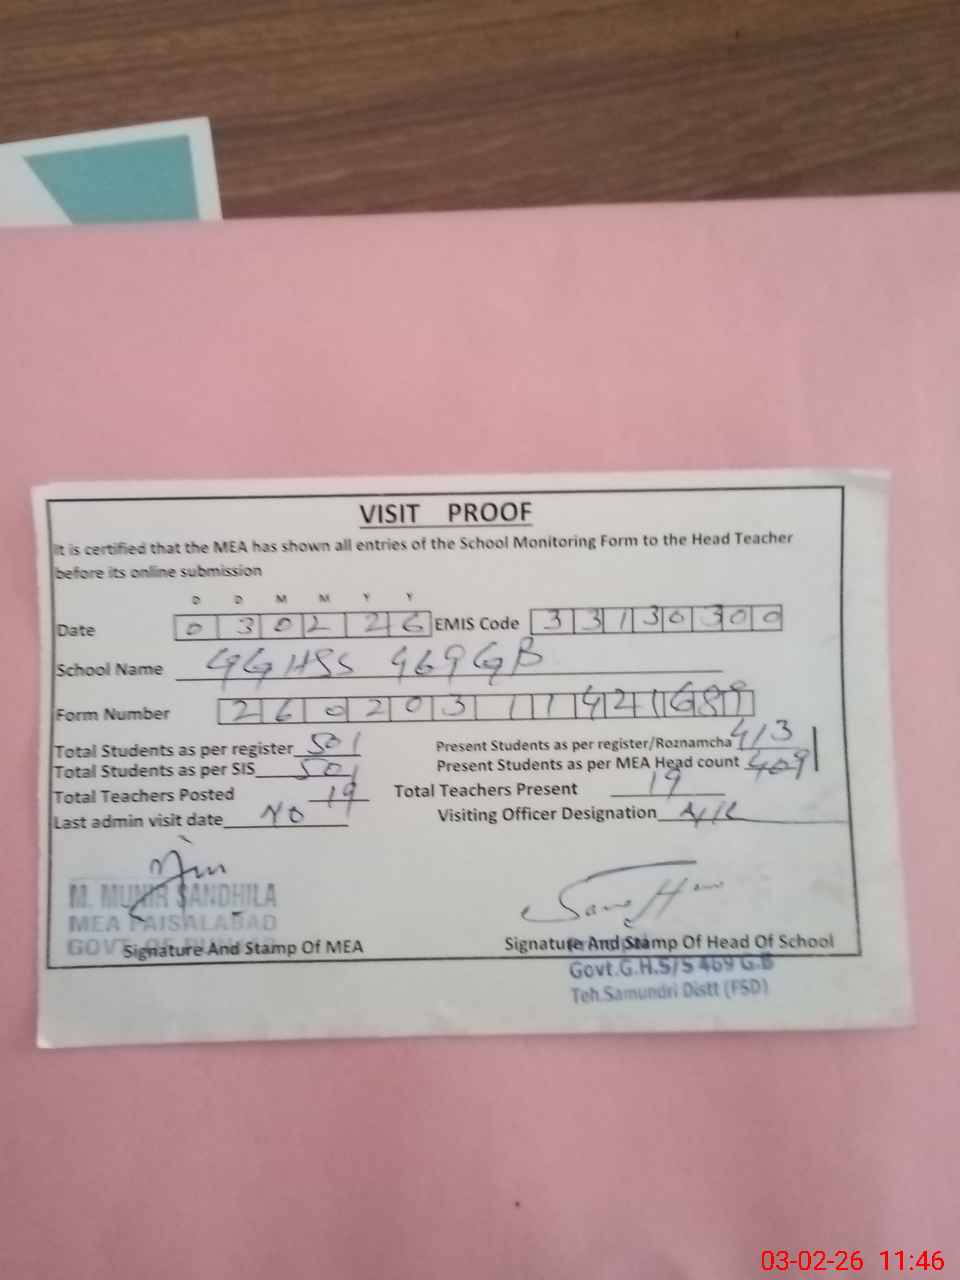 VISIT PROOF
It is certified that the MEA has shown all entries of the School Monitoring Form to the Head Teacher
before its online submission
D D M M Y Y
Date 0 3 0 2 2 6 EMIS Code 3 3 1 3 0 3 0 0
School Name GGHSS 469 GB
Form Number 2 6 0 2 0 3 1 1 4 2 1 6 8 9
Total Students as per register 501 Present Students as per register/Roznamcha 413
Total Students as per SIS 501 Present Students as per MEA Head count 409
Total Teachers Posted 19 Total Teachers Present 19
Last admin visit date No Visiting Officer Designation
M. MUNIR SANDHILA
MEA FAISALABAD
GOVT
Signature And Stamp Of MEA Signature And Stamp Of Head Of School
Govt.G.H.S/S 469 G.B
Teh.Samundri Distt (FSD)
03-02-26 11:46